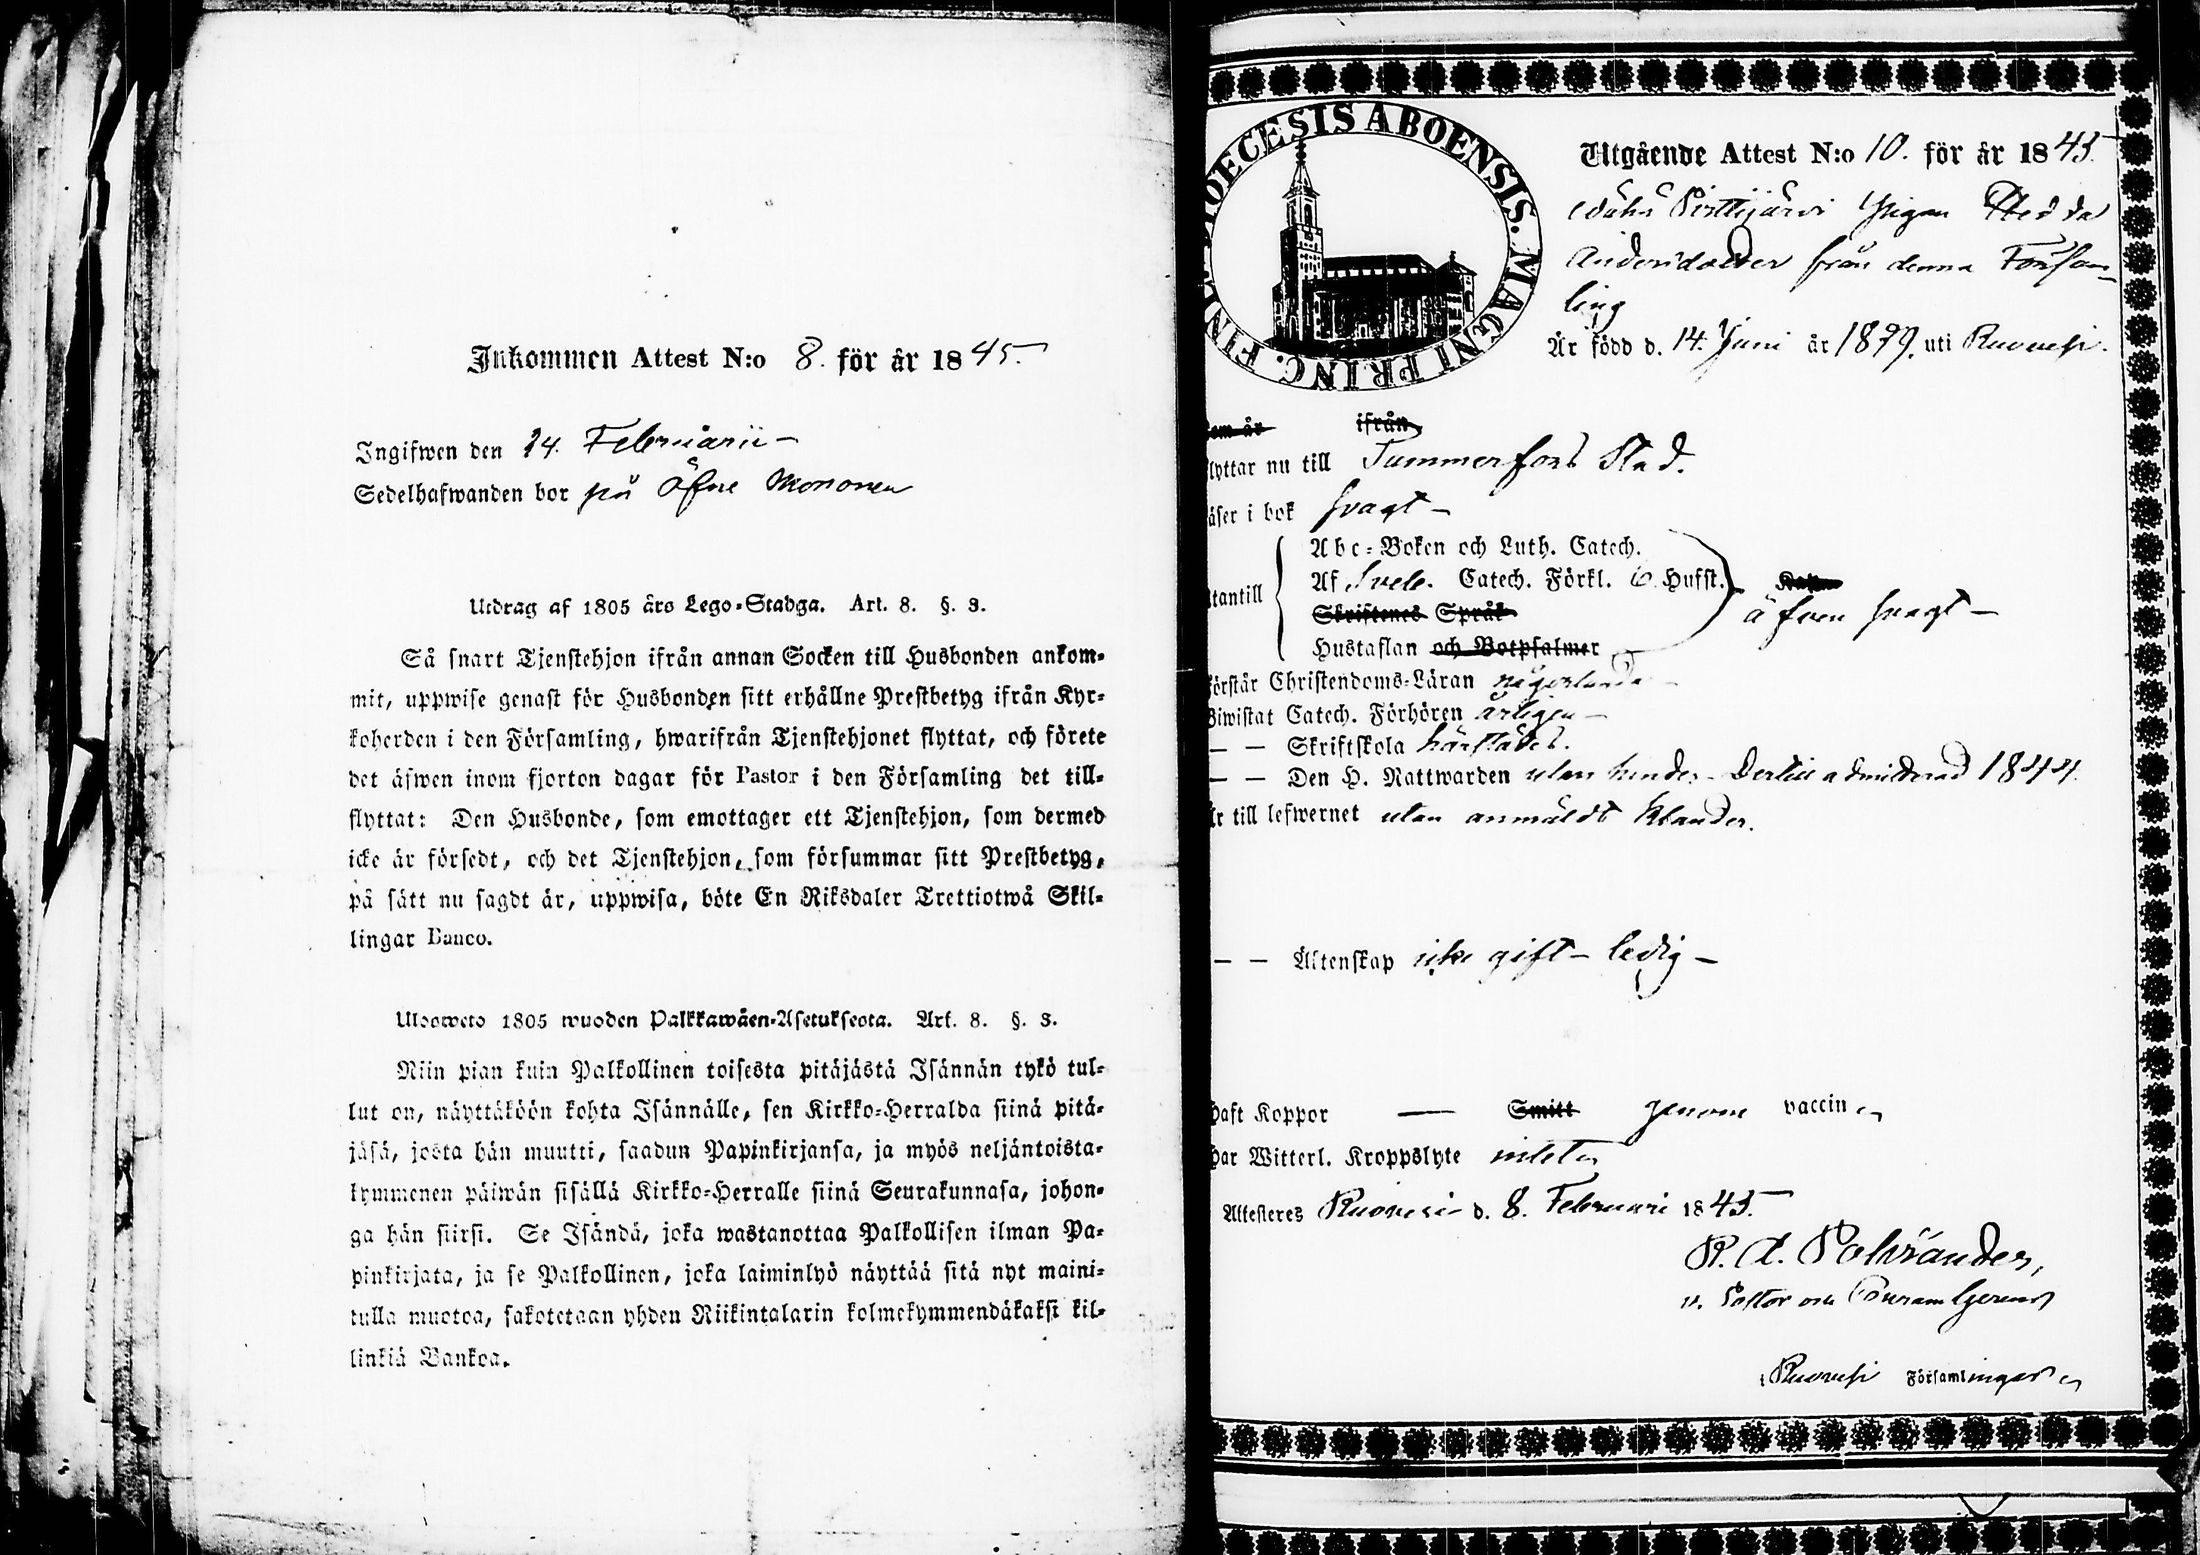 Inkommen Attest N:o 8. för år 1845.
Ingifwen den 14. Februarii –
Sedelhafwanden bor på Öfre
Utdrag af 1805 års Lego-Stadga. Art. 8. §. 3.
Så snart Tjenstehjon ifrån annan Socken till Husbonden ankom-
mit, uppwise genast för Husbonden sitt erhållne Prestbetyg ifrån Kyr-
koherden i den Församling, hwarifrån Tjenstehjonet flyttat, och förete
det äfwen inom fjorton dagar för Pastor i den Församling det till-
flyttat: Den Husbonde, som emottager ett Tjenstehjon, som dermed
icke är försedt, och det Tjenstehjon, som försummar sitt Prestbetyg,
på sätt nu sagdt är, uppwisa, böte En Riksdaler Trettiotwå Skil-
lingar Banco.
Ulosweto 1805 wuoden Palkkawäen-Asetuksesta. Art. 8. §. 3.
Niin pian kuin Palkollinen toisesta pitäjästä Isännän tykö tul-
lut on, näyttäköön kohta Isännälle, sen Kirkko-Herralda siinä pitä-
jäsä, josta hän muutti, saadun Papinkirjansa, ja myös neljäntoista-
kymmenen päiwän sisällä Kirkko-Herralle siinä Seurakunnasa, johon-
ga hän siirsi. Se Isändä, joka wastanottaa Palkollisen ilman Pa-
pinkirjata, ja se Palkollinen, joka laiminlyö näyttää sitä nyt maini-
tulla muotoa, sakotetaan yhden Riikintalarin kolmekymmendäkaksi kil-
linkiä Bankoa.
DIOECESIS ABOENSIS. MAGNI PRINC. FINL.
Utgående Attest N:o 10. för år 1845.
Pigan Hedda
Andersdotter från denna Försam-
ling
Är född d. 14. Juni år 1829. uti Ruovesi.
som är ifrån
lyttar nu till Tammerfors Stad.
äser i bok svagt –
Abc-Boken och Luth. Catech.
Af Sveb. Catech. Förkl. 6. Hufst.
tantill Skriftenes Språk äfven svagt –
Hustaflan och Botpsalmer
örstår Christendoms-Läran någorlunda –
Biwistat Catech. Förhören årligen –
– – Skriftskola härstädes.
– – Den H. Nattwarden utan hinder. Dertill admitterad 1844.
r till lefwernet utan anmäldt klander.
– – Äktenskap icke gift – ledig –
haft Koppor — Smitt genom vaccin
har Witterl. Kroppslyte intet
Attesteres Ruovesi d. 8. Februari 1845.
R. A. Polviander,
v. Pastor
i Ruovesi Församlingar